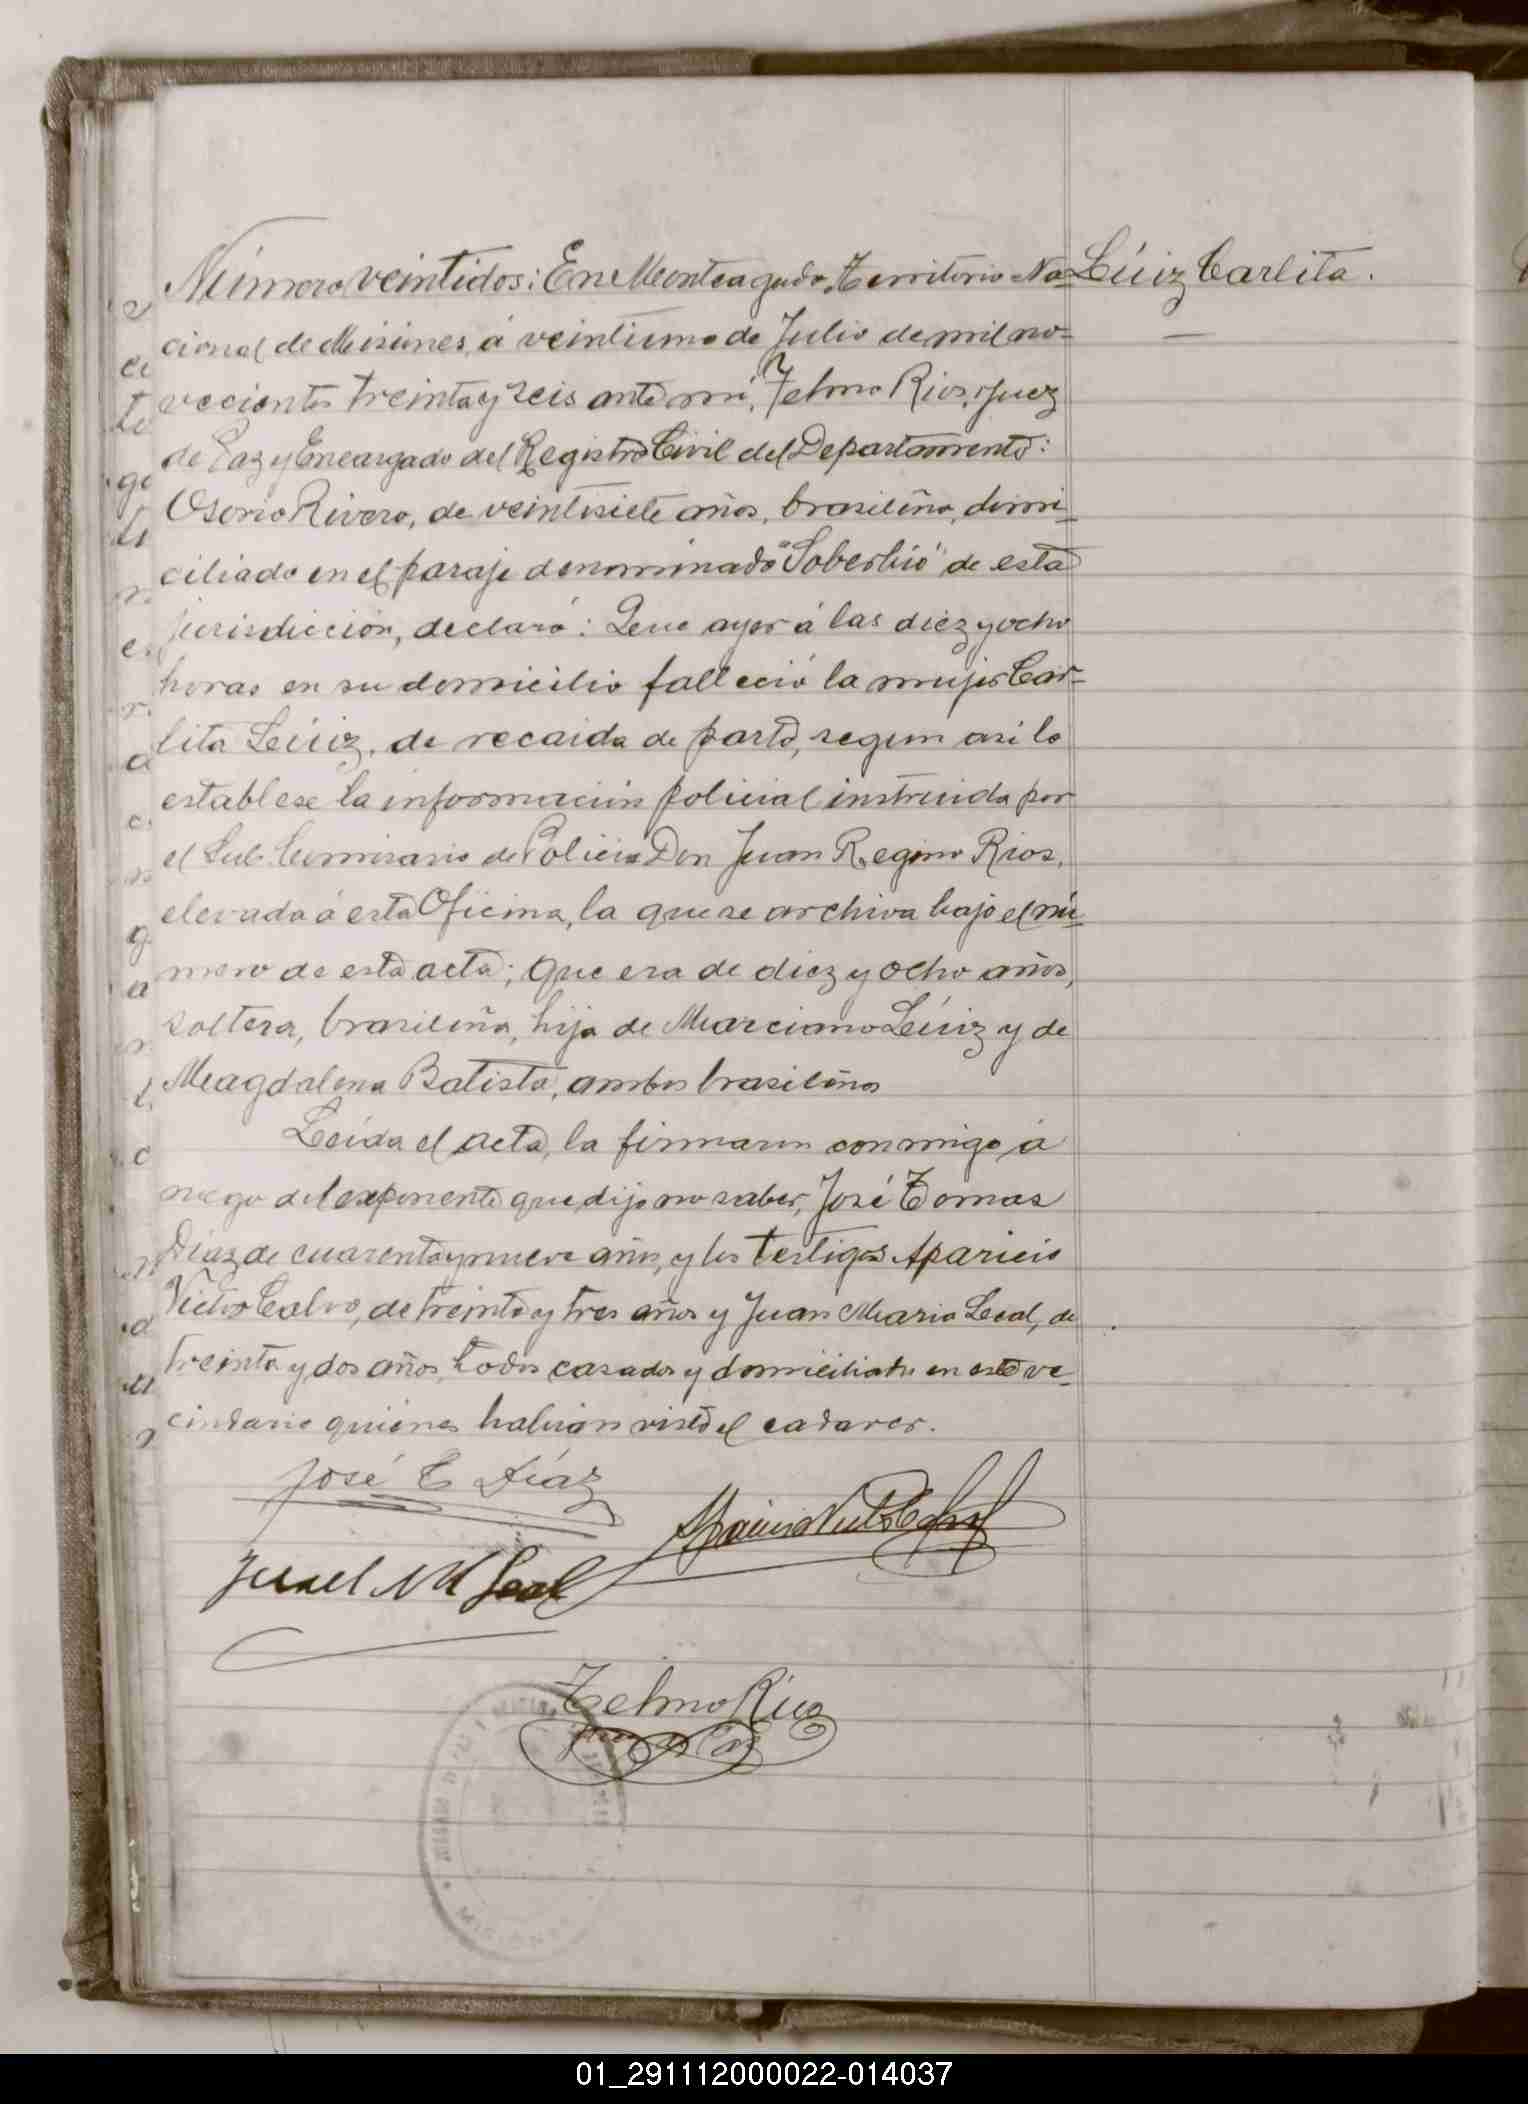 Número veintidos: En Monteagudo, Territorio Na-
Lúiz Carlita.
cional de Misiones, á veintiuno de Julio de mil no-
vecientos treinta y seis ante mí, Telmo Rios, Juez
de Paz y Encargado del Registro Civil del Departamento:
Osorio Rivero, de veintisiete años, brasileño, domi-
ciliado en el paraje denominado "Soberbio" de esta
jurisdicción, declaró: Que ayer á las diez y ocho
horas en su domicilio falleció la mujer Car-
lita Lúiz, de recaida de parto, segun asi lo
establese la información policial instruida por
el Sub. Comisario de Policia Don Juan Regino Rios,
elevada á esta Oficina, la que se archiva bajo el nú-
mero de esta acta; que era de diez y ocho años,
soltera, brasileña, hija de Marciano Lúiz y de
Magdalena Batista, ambos brasileños
Leída el acta, la firmaron conmigo á
ruego del exponente que dijo no saber, José Tomas
Díaz de cuarenta y nueve años, y los testigos Aparicio
Victor Calvo, de treinta y tres años y Juan Maria Leal, de
treinta y dos años, todos casados y domiciliados en este ve-
cindario quiénes habian visto el cadaver.
José T Díaz
Juan M Leal
Telmo Rios
Juez de Paz
01_291112000022-014037